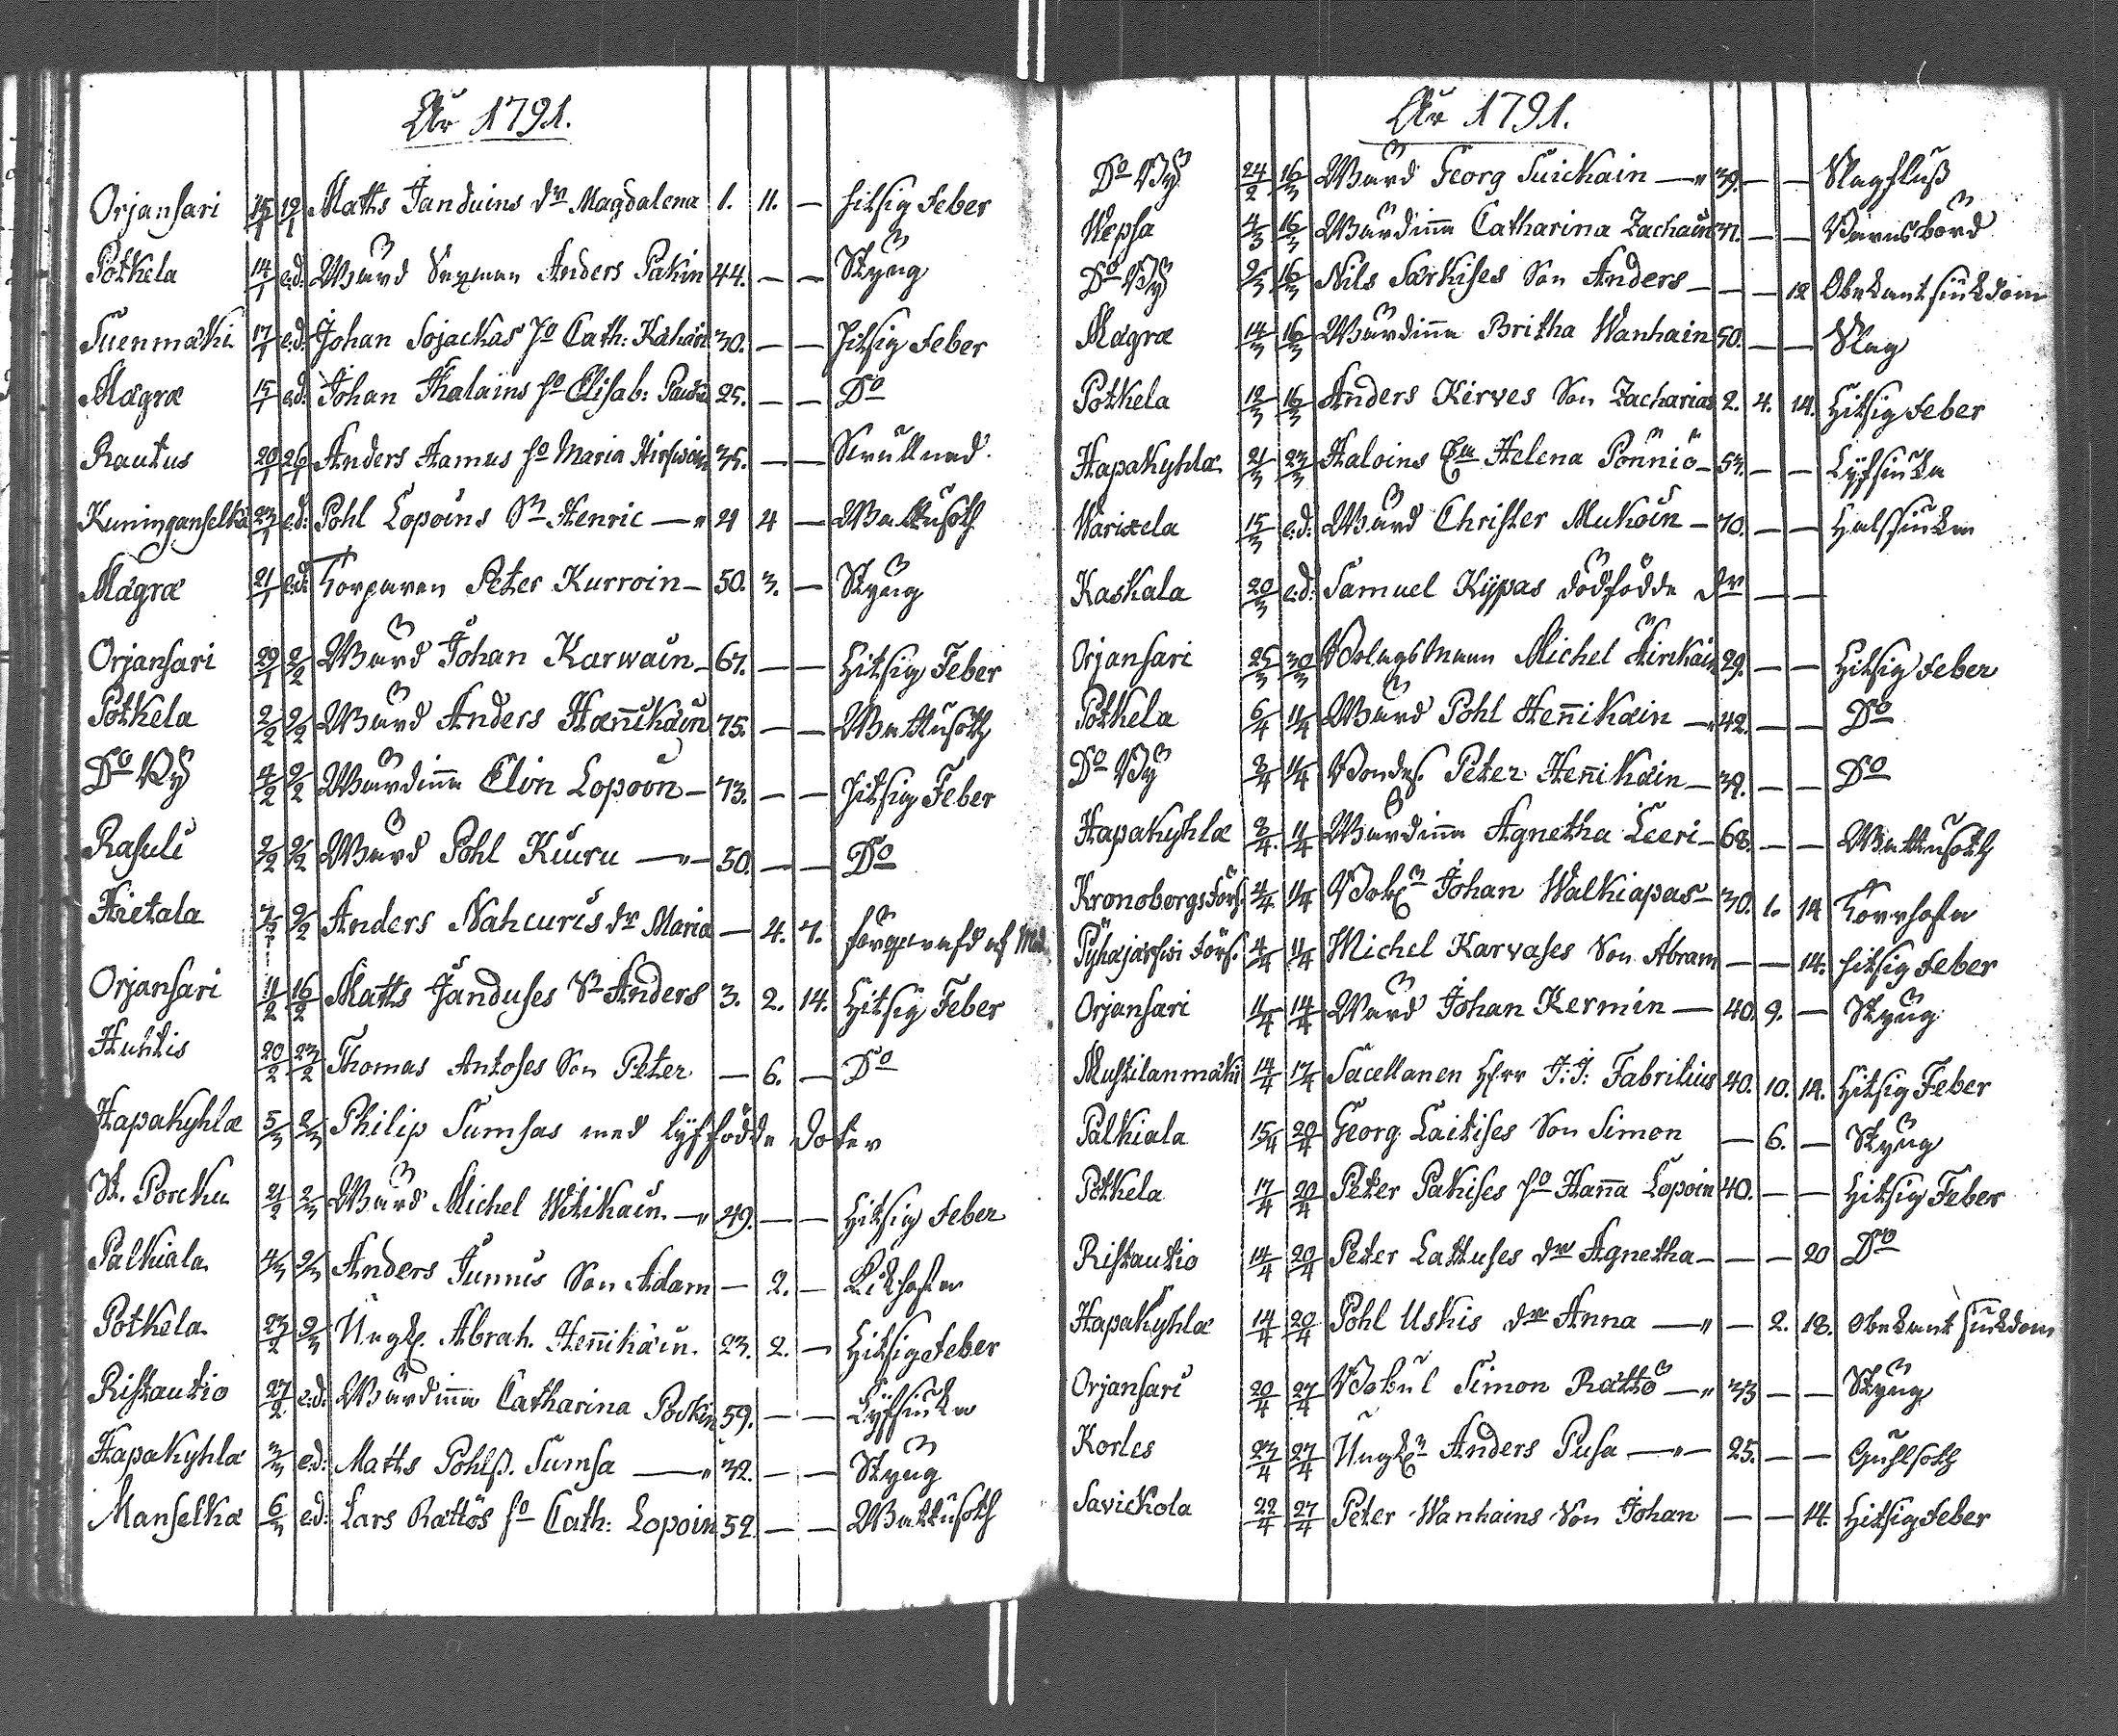 År 1791.
Orjansari 15/1 19/1 Matts Janduins dr Magdalena 1. 11. — hitsig Feber
Potkela 14/1 e.d. Wärd Sexman Anders Pakin 44. — — Styng
Suenmäki 17/1 e.d. Johan Sojackas ho Cath: 30. — — Hitsig Feber
Magræ 15/1 e.d. Johan Thalains ho Elisab: 25. — — Do
Rautus 20/1 26/1 Anders Hamus ho Maria 35. — —
Kuninganselkä 23/1 e.d. Pohl Lopoins Sn Henric —„ 21 4 — Wattusoth
Magræ 21/1 e.d. Torparen Peter Kurroin — 50. 3. — Styng
Orjansari 29/1 2/2 Wärd Johan Karwain — 67. — — Hitsig Feber
Potkela 2/2 9/2 Wärd Anders Hæn̄ikäin 75. — — Wattusoth
Do By 4/2 9/2 Wärdinna Elin Lopoin — 73. — — Hitsig Feber
Rasuli 2/2 9/2 Wärd Pohl Kiuru —„— 50. — — Do
Hietala 9/2 Anders Nahcuris dr Maria — 4. 7. förqvafd af
Orjansari 11/2 16/2 Matts Janduses Sn Anders 3. 2. 14. Hitsig Feber
Huhtis 20/2 23/2 Thomas Antoses Son Peter — 6. — Do
Hapakyhlæ 5/3 2/3 Philip Sumsas med lijfsfödde Doter
St. Porcku 21/2 2/3 Wärd Michel Witikain. —„ 49. — — Hitsig Feber
Palkiala 4/3 9/3 Anders Junnis Son Adam — 2. — Kikhosta
Potkela 23/2 9/3 Ungk. Abrah. Hen̄ikäin. 23. 2. — Hitsig Feber
Ristautio 27/2 e.d. Wärdinna Catharina 59. — — Lijfsiuka
Hapakyhlæ 3/3 e.d. Matts Pohlss. Sumsa —„ 32. — — Styng
Manselkæ 6/3 e.d. Lars Rättös ho Cath: Lopoin 52 — — Wattusoth
År 1791.
Do By 24/2 16/3 Wärd Georg Suickain —„ 39. — — Slagfluss
Wepsa 4/3 16/3 Wärdinna Catharina Zachaus 37. — — Barnsbörd
Do By 9/3 16/3 Nils Särkises Son Anders — — — 12 Obekant siukdom
Magræ 14/3 16/3 Wärdinna Britha Wanhain 50. — — Slag
Potkela 12/3 16/3 Anders Kirves Son Zacharias 2. 4. 14. Hitsig Feber
Hapakyhlæ 21/3 23/3 Haloins Helena Pönniö — 53. — — Lijfsiuka
Warixela 15/3 e.d. Wärd Christer Mukoin — 70. — — Halssiukan
Kaskala 20/3 e.d. Samuel Kypas dödfödde dr — —
Orjansari 25/3 30/3 Bolagsman Michel Hinkain 29. — — Hitsig Feber
Potkela 6/4 11/4 Wärd Pohl Hen̄ikäin —„ 42. — — Do
Do By 8/4 11/4 Bondes. Peter Hen̄ikäin — 39. — — Do
Hapakyhlæ 8/4 11/4 Wärdinna Agnetha Leeri — 68. — — Wattusoth
Kronoborgs förs. 4/4 11/4 Johan Walkiapas — 30. 1. 14 Torrhosta
Pyhäjärfwi förs. 4/4 11/4 Michel Karvases Son Abram — — 14. hitsig Feber
Orjansari 11/4 14/4 Wärd Johan Kermin — 40. 9. — Styng
Mustilanmäki 14/4 17/4 Sacellanen Herr J: J: Fabritius 40. 10. 14. Hitsig Feber
Palkiala 15/4 20/4 Georg Laitises Son Simon — 6. — Styng
Potkela 17/4 20/4 Peter Pakises ho Han̄a Lopoin 40. — — Hitsig Feber
Ristautio 14/4 20/4 Peter Lattuses dr Agnetha — — — 20 Do
Hapakyhlæ 14/4 20/4 Pohl Uskis dr Anna —„ — 2. 18. Obekant siukdom
Orjansari 20/4 27/4 Simon Rättö —„ 33 — — Styng
Korles 23/4 27/4 Ungk. Anders Pusa —„— 25. — — Guhlsoth
Savickola 22/4 27/4 Peter Wanhains Son Johan — — 14. Hitsig Feber